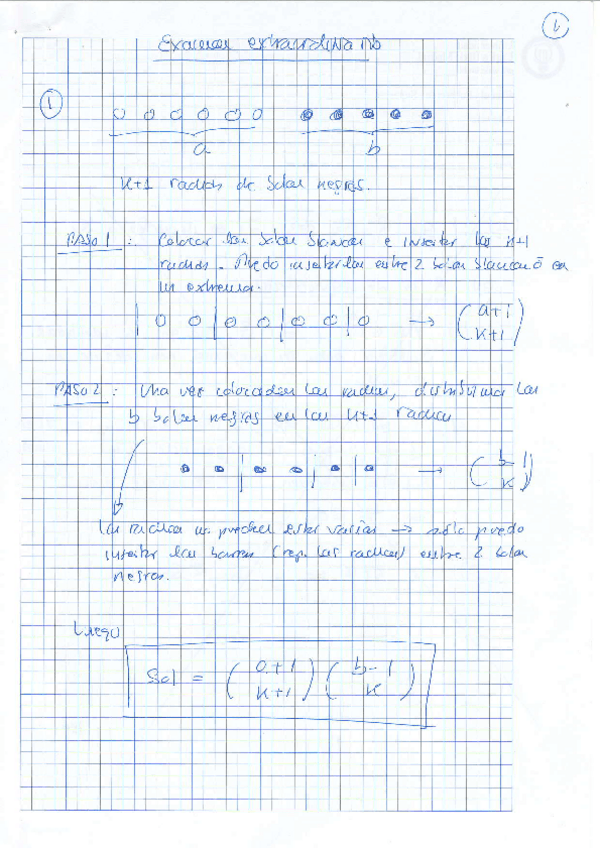 6
Examen extraordinario
1
a
b
k+1 rachas de bolas negras.
PASO 1 : Colocar las bolas blancas e insertar las k+1
rachas. Puedo insertarlas entre 2 bolas blancas ó en
un extremo.
(a+1
k+1)
PASO 2 : Una vez colocadas las rachas, distribuimos las
b bolas negras en las k+1 rachas
(b-1
k)
Las rachas no pueden estar vacías → sólo puedo
insertar las barras (rep. las rachas) entre 2 bolas
negras.
Luego
Sol = (a+1
k+1) (b-1
k)